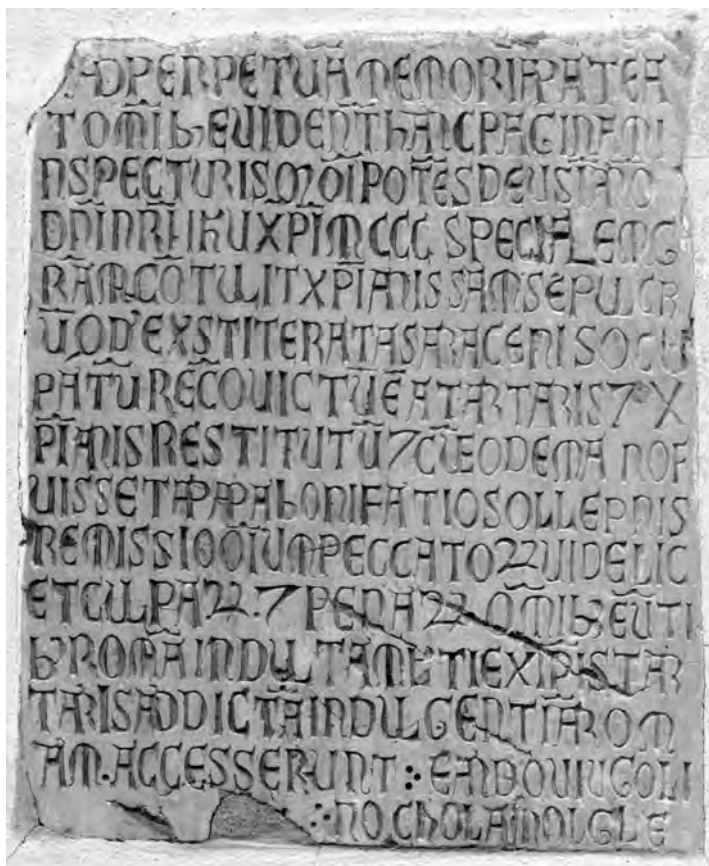 ADPERPETUĀ MEMORIĀ PATEA
T OM̄IBꝫ EVIDENT̄ HĀC PAGINAM I
NSPECTURIS Q̄ OĪPOTĒS DEUS Ī ANO
DN̄I NR̄I IHŪ XP̄I M̄CCC SPECIALEM G
RAM̄ CŌTULIT XP̄IANIS SAM̄ SEPULCR
Ū QD' EXSTITERAT A SARACENIS OCCU
PATŪ RECŌVICTŪ Ē A TARTARIS 7 X
P̄IANIS RESTITUTŪ 7 CŪ EODEM ANO F
UISSET A PAPA BONIFATIO SOLLEPNIS
REMISSIO OĪUM PECCATOꝝ VIDELIC
ET CULPAꝝ . 7 PENAꝝ OM̄IBꝫ EŪTI
Bꝫ ROMĀ INDULTA ML̄TI EX IP̄IS TAR
TARIS AD DICTĀ INDULGENTIĀ ROM
AM . ACCESSERUNT : E ANDOVI UGOLI
: NO CHOLAMOIGLE